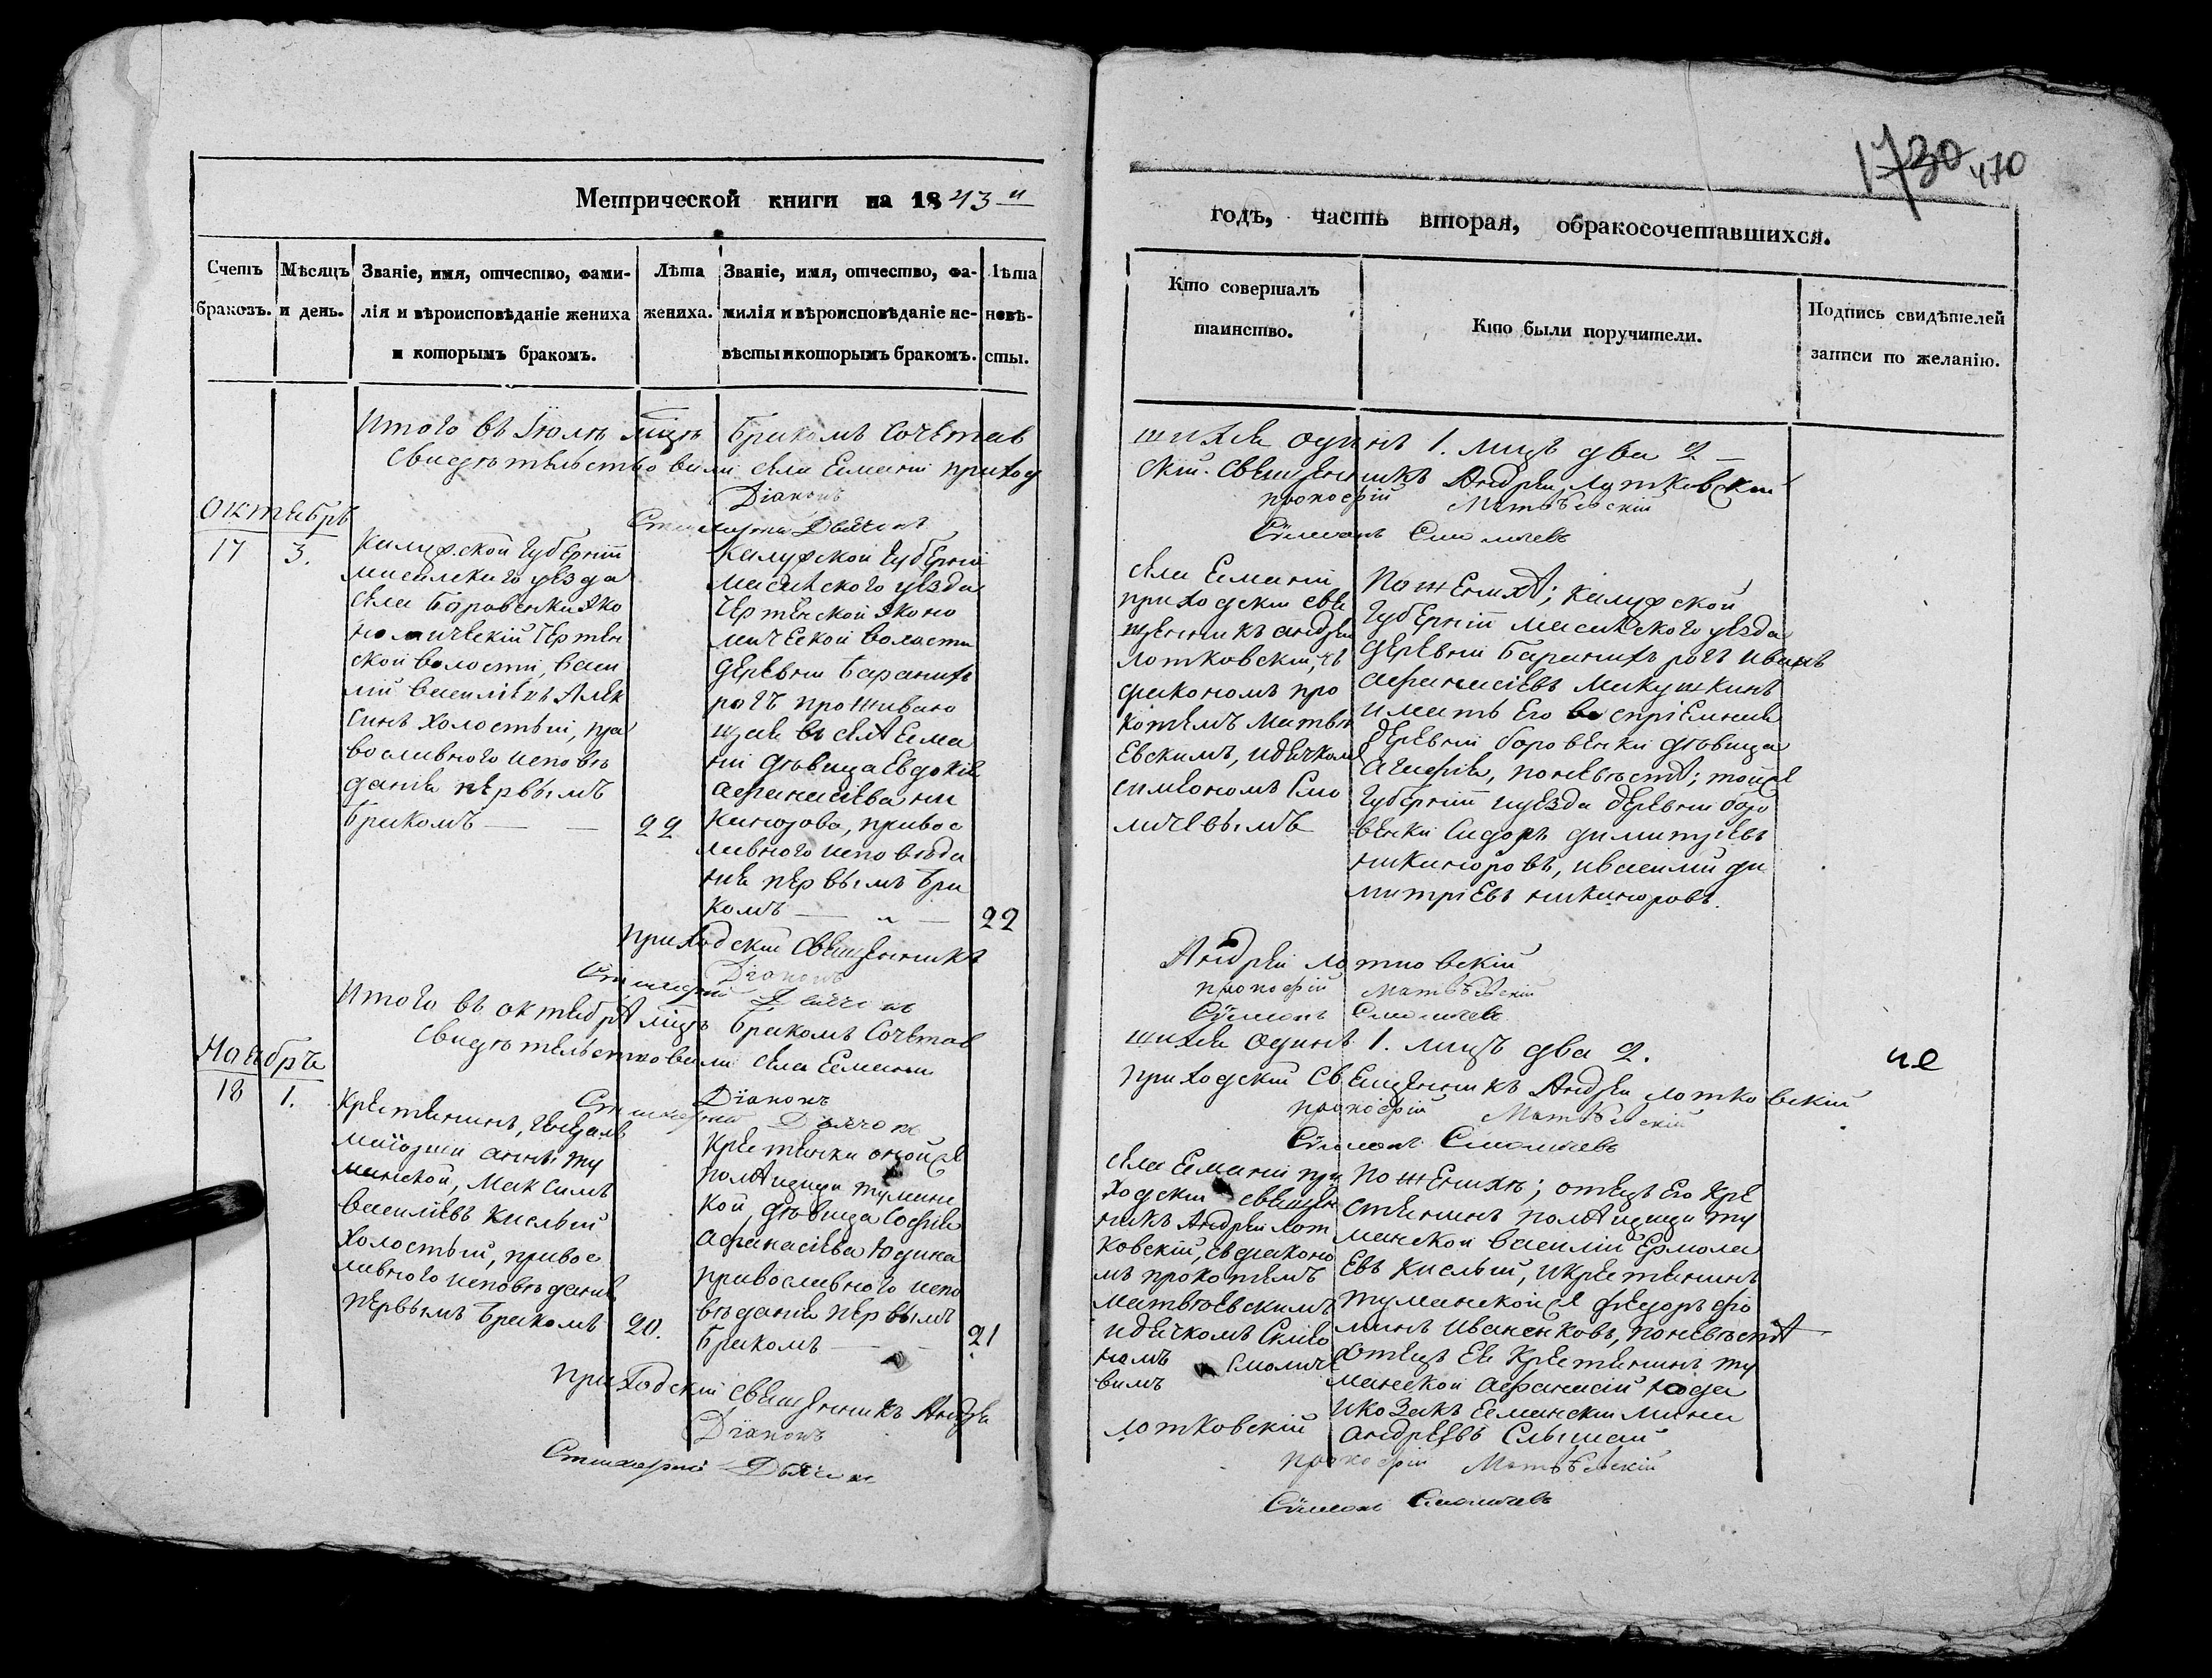 1730 470
Метрической книги на 1843 й
годъ, часть вторая, обракосочетавшихся.
Счетъ браковъ.
Мѣсяцъ и день.
Званіе, имя, отчество, фами-
лія и вѣроисповѣданіе жениха
и которымъ бракомъ.
Лѣта
жениха.
Званіе, имя, отчество, фа-
милія и вѣроисповѣданіе не-
вѣсты и которымъ бракомъ.
Лѣта
невѣ-
сты.
Кто совершалъ
таинство.
Кто были поручители.
Подпись свидѣтелей
записи по желанію.
Итого въ Іюлѣ мцѣ Бракомъ Сочетав
шихся одинъ 1. лицъ два 2
Свидѣтельствовали села Есмани приход
скій Священникъ Андрей Лотковскій
Діаконъ Прокофій Матвѣевскій
Стихарный Дьячокъ Сѵмеонъ Смоличевъ
Октябрь
17 3.
Калужской Губерніи
Масальскаго уезда
села Баровенки Эко
номической Чертен
ской волости, Васи
лій Васильевъ Алек
синъ холостый, пра
вославного исповѣ
данія первымъ
Бракомъ
22
Калужской Губерніи
Масальского уезда
Чертенской Эконо
мической волости
деревни Баранихъ
рогъ проживаю
щая въ селѣ Есма
ни дѣвица Евдокія
Афанасіева Ми
, правос
лавного исповѣда
нія первымъ бра
комъ
22
села Есмани
приходскій Свя
щенникъ Андрей
Лотковскій, съ
діакономъ Про
кофіемъ Матвѣ
евскимъ, и дьячкомъ
Симеономъ Смо
личевымъ
По женихѣ; Калужской
Губерніи Масальского уезда
деревни Баранихъ рогъ Иванъ
Афанасіевъ Микушкинъ
и мать его воспріемная
деревни Боровенки дѣвица
Агафія, по невѣстѣ; тойже
Губерніи и уезда деревни Боро
венки Сидоръ Димитріевъ
Никаноровъ, и Василій Ди
митріевъ Никаноровъ.
Приходскій Священникъ Андрей Лотковскій
Діаконъ Прокофій Матвѣевскій
Стихарный Дьячокъ Сѵмеонъ Смоличевъ
Итого въ октябрѣ мцѣ Бракомъ Сочетав
шихся одинъ 1. лицъ два 2.
Свидѣтельствовали села Есмани
приходскій Священникъ Андрей Лотковскій
Діаконъ Прокофій Матвѣевскій
Стихарный Дьячокъ Сѵмеонъ Смоличевъ
Ноябрь
18 1.
Крестянинъ, Генералъ
маіорши Анны Ту
манской, Максимъ
Васильевъ Кислый
Холостый, правос
лавного исповѣданія
первымъ Бракомъ
20.
Крестянки онойже
помѣщици Туманс
кой, дѣвица Софія
Афанасіева Юдина
православного испо
вѣданія первымъ
Бракомъ
21
села Есмани при
ходскій Священ
никъ Андрей Лот
ковскій, съ діаконо
мъ Прокофіемъ
Матвѣевскимъ
и дьячкомъ Симео
номъ Смоличе
вымъ
По женихѣ; отецъ его кре
стянинъ помѣщици Ту
манской Василій Ермола
евъ Кислый, и крестянинъ
Туманскойже Федоръ Фо
минъ Иваненковъ, по невѣстѣ
отецъ Ея крестянинъ Ту
манской Афанасій Юда
и козакъ Есманскій Мина
Андреевъ Слышай
Приходскій Священникъ Андрей
Лотковскій
Діаконъ Прокофій Матвѣевскій
Стихарный Дьячокъ Сѵмеонъ Смоличевъ